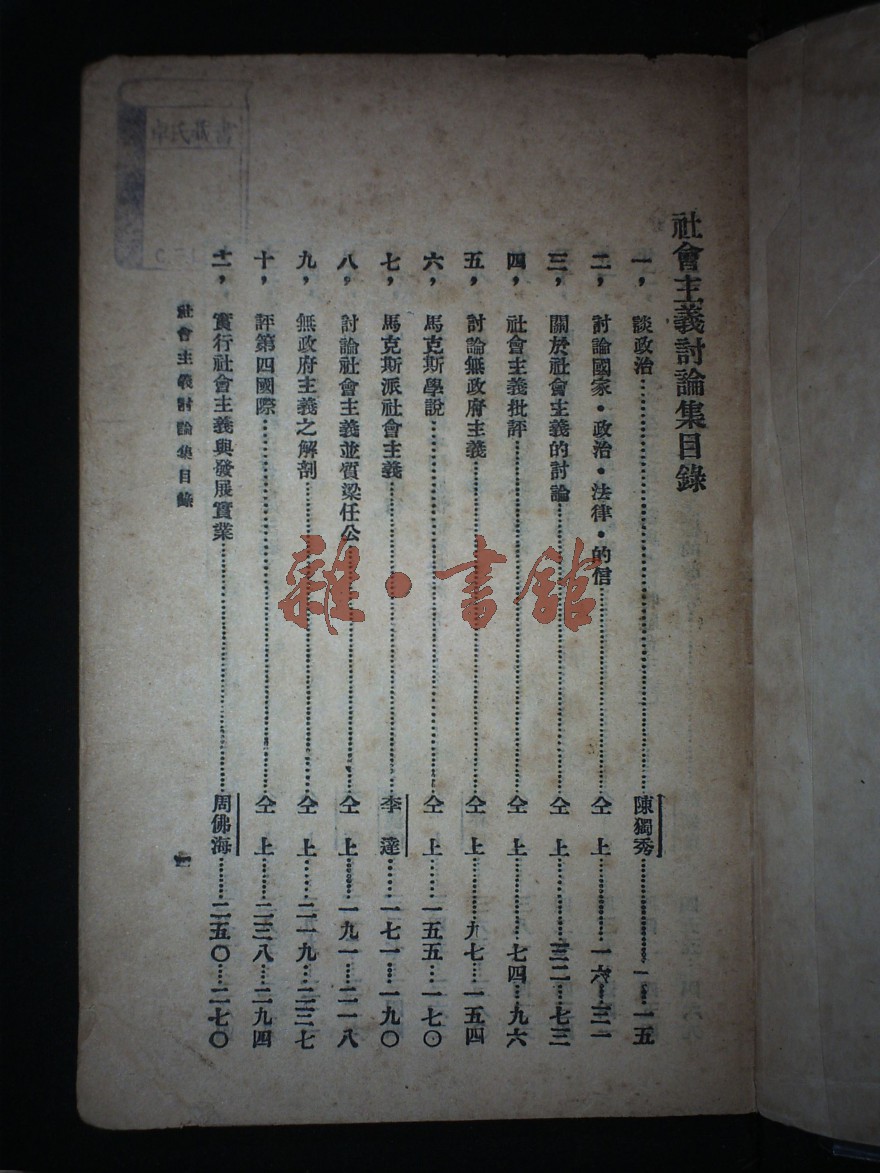 社會主義討論集目錄
一，談政治……陳獨秀……一…一五
二，討論國家·政治·法律·的信……仝上……一六…三一
三，關於社會主義的討論……仝上……三二…七三
四，社會主義批評……仝上……七四…九六
五，討論無政府主義……仝上……九七…一五四
六，馬克斯學說……仝上……一五五…一七〇
七，馬克斯派社會主義……李達……一七一…一九〇
八，討論社會主義並質梁任公……仝上……一九一…二一八
九，無政府主義之解剖……仝上……二一九…二三七
十，評第四國際……仝上……二三八…二九四
十一，實行社會主義與發展實業……周佛海……二五〇…二七〇
社會主義討論集目錄
一
雜·書館